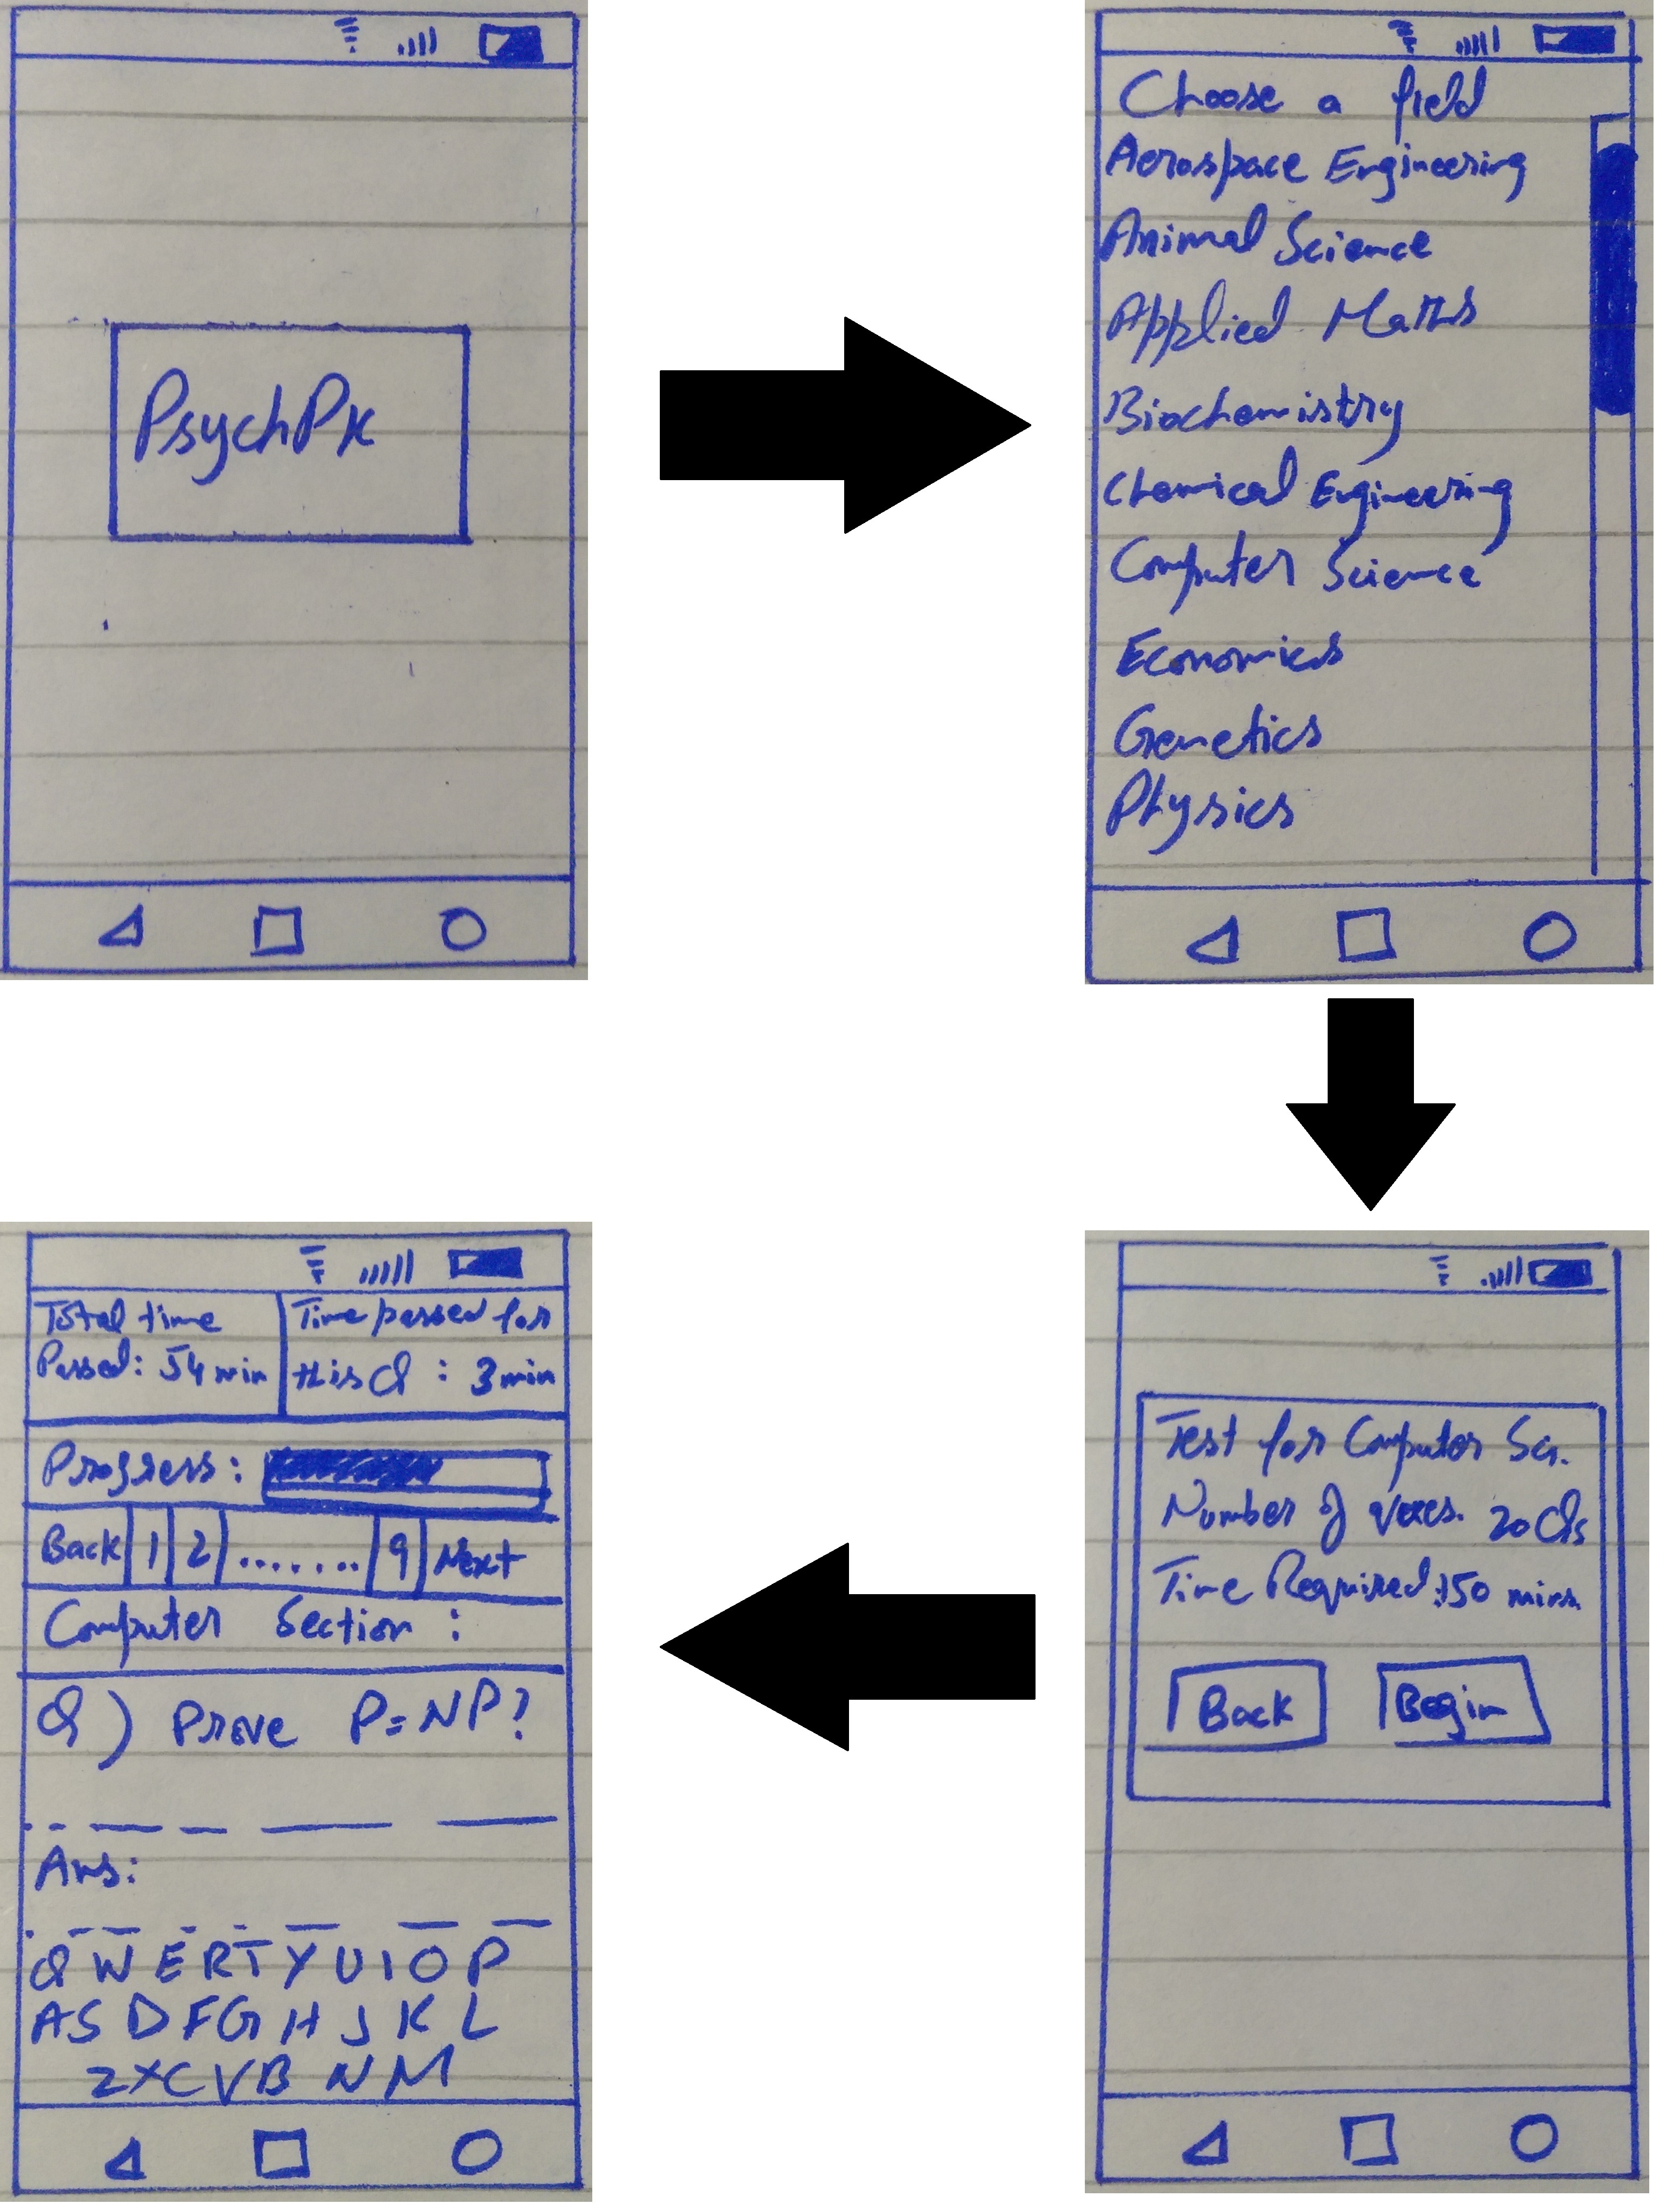 PsychPk
Choose a field
Aerospace Engineering
Animal Science
Applied Maths
Biochemistry
Chemical Engineering
Computer Science
Economics
Genetics
Physics
Test for Computer Sci.
Number of 20 Qs
Time Required: 150 mins.
Back Begin
Total time
Passed: 54 min
Time passed for
this Q : 3 min
Progress:
Back 1 2 ....... 9 Next
Computer Section :
Q) Prove P=NP?
Ans:
Q W E R T Y U I O P
A S D F G H J K L
Z X C V B N M